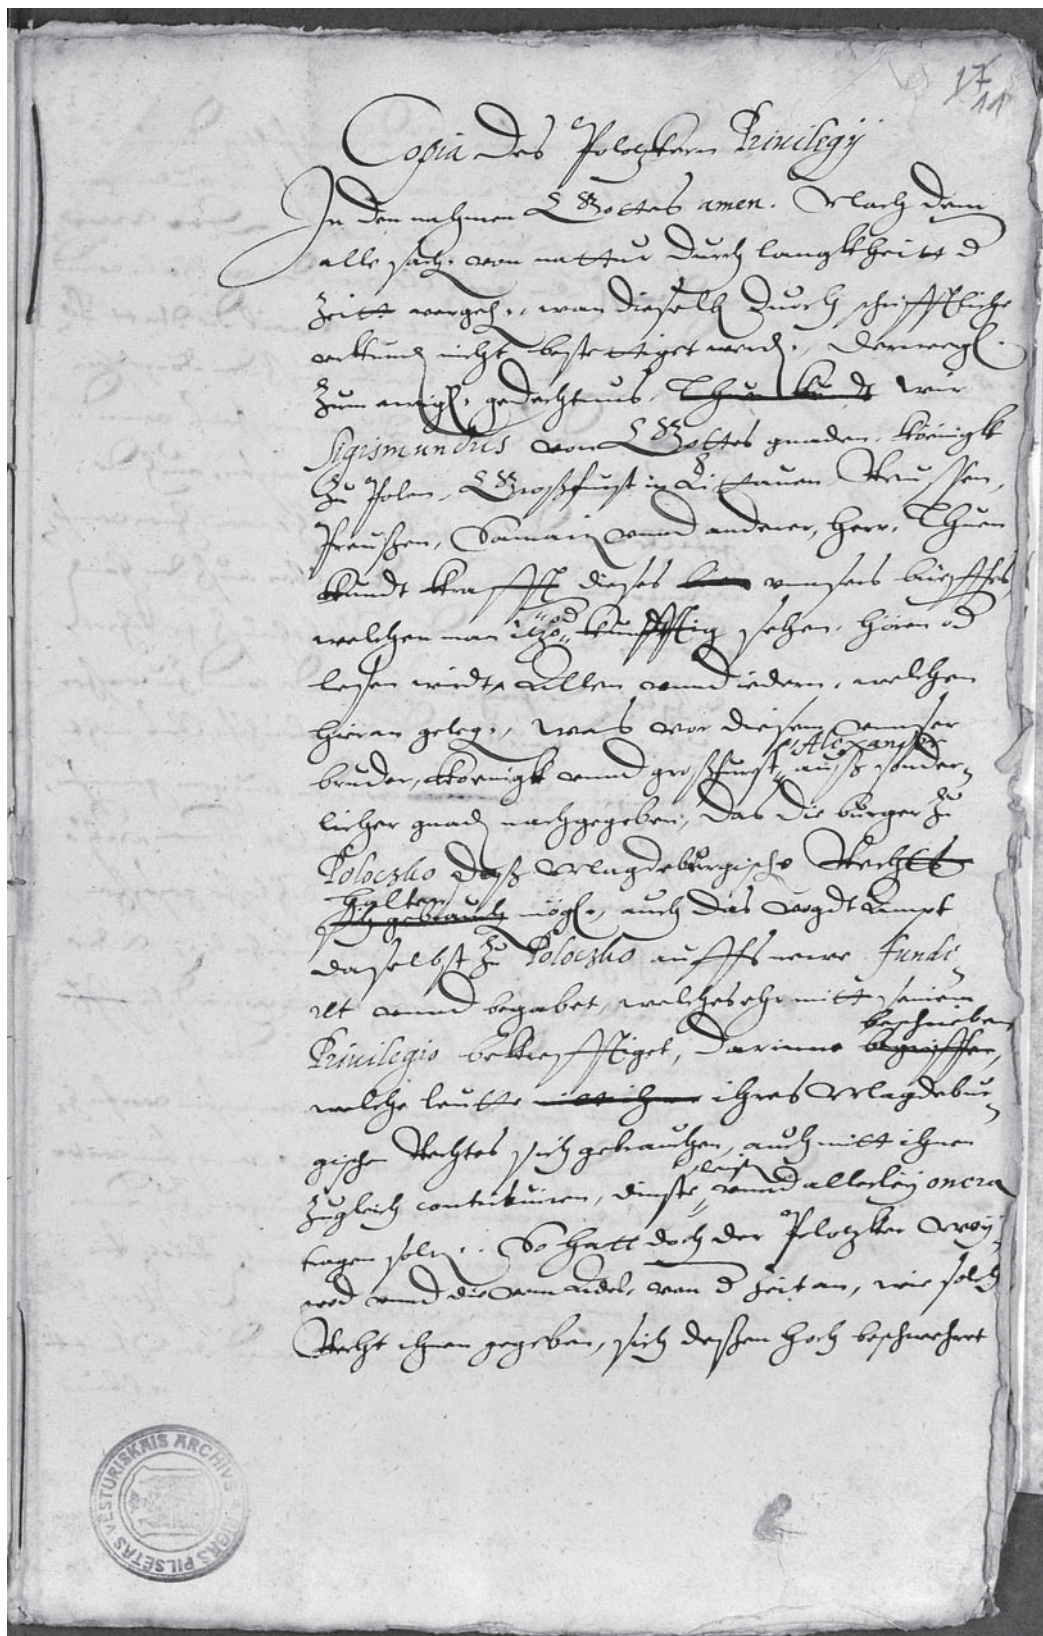 17
11
Copia des Polotzkern Priuilegij
In den nahmen Gottes amen. Nach dem
alle sach. von nattur durch langkheitt d
Zeitt vergeh., wan dieselb durch schrifftliche
vrkund nicht bestettiget werd., derweg.
Zum ewig. gedechtnus, Thun kundt wir
Sigismundus von Gottes gnaden, Köninigk
Zu Polen, Großfurst in Littauen Reussen,
Preußen, Samait vnnd anderer, herr, Thuen
kundt krafft dieses vnsers brieffes,
welchen man itzo od kunfftig sehen, hören od
lesen wirdt, Allen vnnd iedern, welchen
hieran geleg., Was vor diesem vnser
bruder, Koenigk vnnd großfurst Alexander auß sonder„
licher gnad nachgegeben, das die burger Zu
Poloczko daß Magdeburgische Rechtt
halten
sich gebrauch mög., auch das vogdt Ampt
daselbst Zu Poloczko auffs newe fundi„
rt vnnd begabet, welches ehr mitt seinem
Priuilegio bekrefftiget, darinne begriffen, beschrieben
welche leutte mit ihnen ihres Magdebur„
gische Rechtes sich gebrauchen, auch mitt ihnen
Zugleich contribuiren, dinste leist vnnd allerley onera
tragen soll. So hatt doch der Polotzker Woy„
wod vnnd die vom Adel, von d Zeit an, wie solch
Recht ihnen gegeben, sich deßen hoch beschwehret
RIGAS PILSETAS VESTURISKAIS ARCHIVS